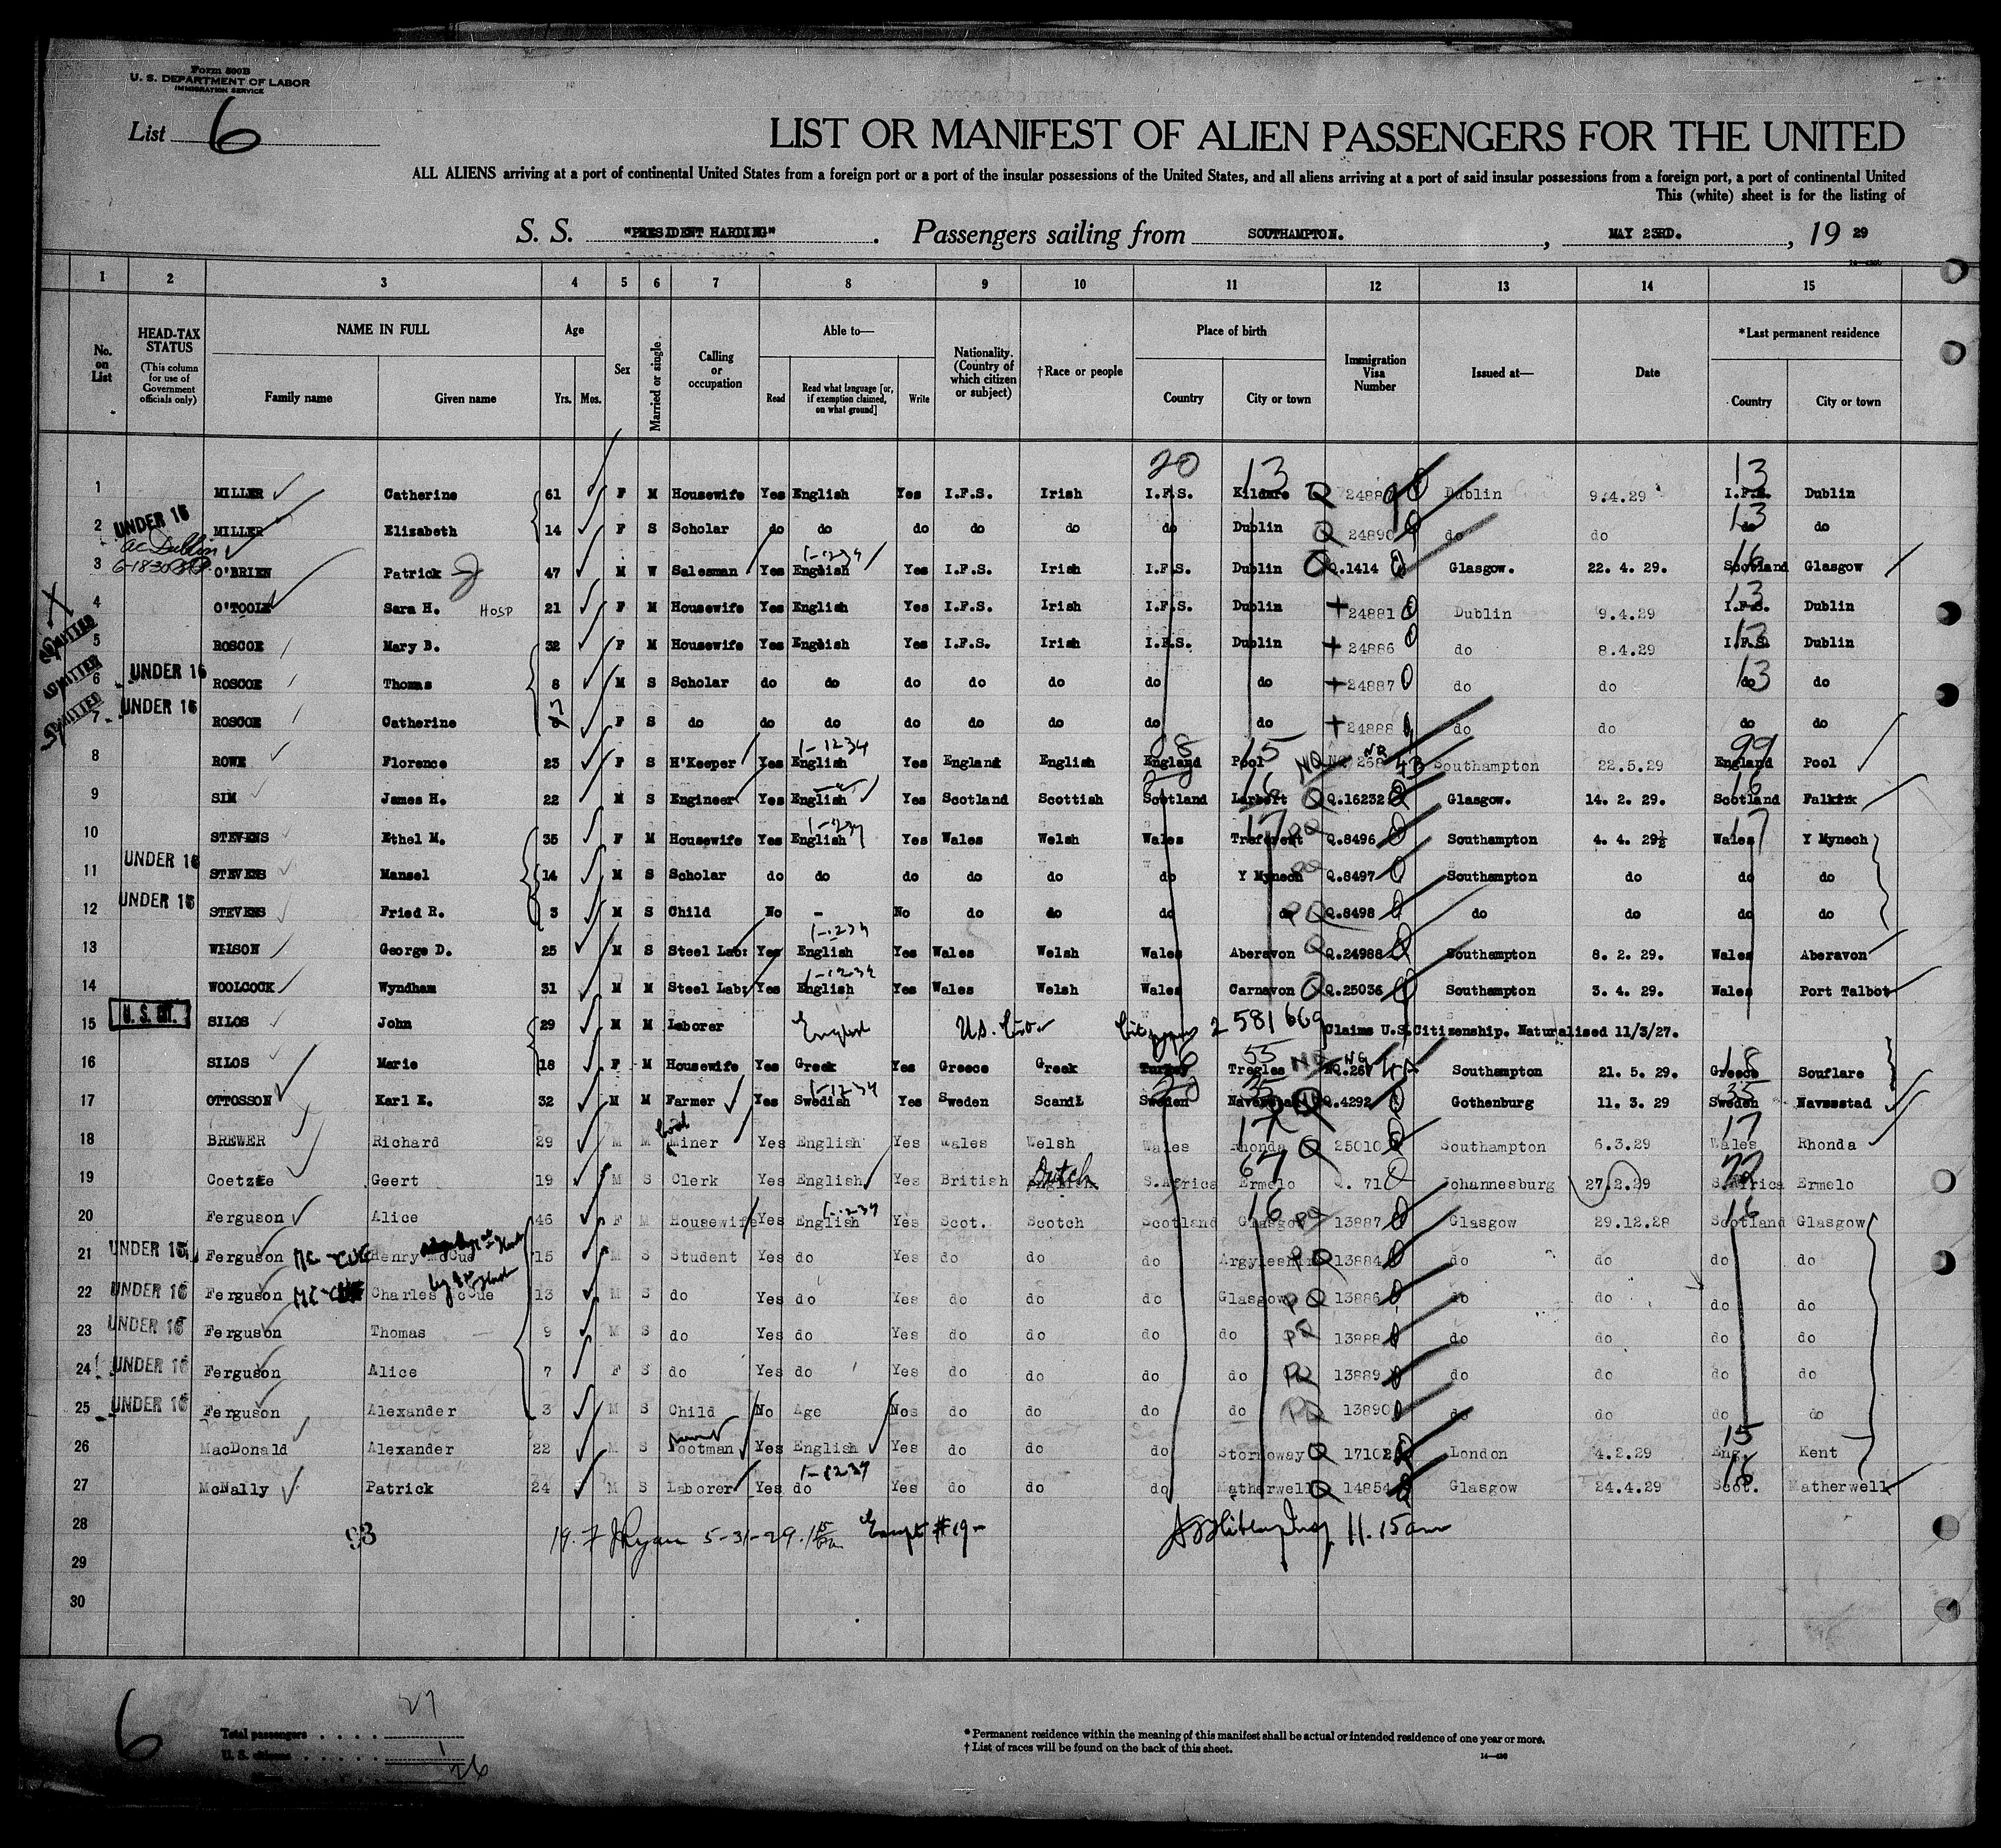 Form 500B
U. S. DEPARTMENT OF LABOR
IMMIGRATION SERVICE
List 6
LIST OR MANIFEST OF ALIEN PASSENGERS FOR THE UNITED
ALL ALIENS arriving at a port of continental United States from a foreign port or a port of the insular possessions of the United States, and all aliens arriving at a port of said insular possessions from a foreign port, a port of continental United
This (white) sheet is for the listing of
S. S. "PRESIDENT HARDING". Passengers sailing from SOUTHAMPTON., MAY 23RD., 19 29
1 2 3 4 5 6 7 8 9 10 11 12 13 14 15
No. on List
HEAD-TAX STATUS
(This column for use of Government officials only)
NAME IN FULL
Family name Given name
Age
Yrs. Mos.
Sex
Married or single.
Calling or occupation
Able to—
Read Read what language [or, if exemption claimed, on what ground] Write
Nationality. (Country of which citizen or subject)
†Race or people
Place of birth
Country City or town
Immigration Visa Number
Issued at—
Date
*Last permanent residence
Country City or town
20 13 13
1 MILLER Catherine 61 F M Housewife Yes English Yes I.F.S. Irish I.F.S. Kildare Q 24889 Dublin 9.4.29 I.F.S. Dublin
2 UNDER 16 MILLER Elizabeth 14 F S Scholar do do do do do do Dublin Q 24890 do do 13 do do
3 O'BRIEN Patrick 47 M W Salesman Yes English 1-1234 Yes I.F.S. Irish I.F.S. Dublin Q.1414 Glasgow. 22. 4. 29. 16 Scotland Glasgow
4 O'TOOLE Sara H. HOSP 21 F M Housewife Yes English Yes I.F.S. Irish I.F.S. Dublin 24881 Dublin 9.4.29 13 I.F.S. Dublin
5 ADMITTED ROSCOE Mary B. 32 F M Housewife Yes English Yes I.F.S. Irish I.F.S. Dublin 24886 do 8.4.29 13 I.F.S. Dublin
6 ADMITTED UNDER 16 ROSCOE Thomas 8 M S Scholar do do do do do do do 24887 do do 13 do do
7 ADMITTED UNDER 16 ROSCOE Catherine 7 F S do do do do do do do do 24888 do do do do
8 ROWE Florence 23 F S H'Keeper Yes English 1-1234 Yes England English England Pool 15 NQ Southampton 22.5.29 99 England Pool
9 SIM James H. 22 M S Engineer Yes English Yes Scotland Scottish Scotland Larbert 16 Q.16232 Glasgow. 14. 2. 29. 16 Scotland Falkirk
10 STEVENS Ethel M. 35 F M Housewife Yes English 1-1234 Yes Wales Welsh Wales Treforest 17 PQ Q.8496 Southampton 4. 4. 29½ 17 Wales Y Mynech
11 UNDER 16 STEVENS Mansel 14 M S Scholar do do do do do do Y Mynech PQ Q.8497 Southampton do do do
12 UNDER 16 STEVENS Fried R. 3 M S Child No - No do do do do PQ Q.8498 do do do do
13 WILSON George D. 25 M S Steel Lab: Yes English 1-1234 Yes Wales Welsh Wales Aberavon Q.24988 Southampton 8. 2. 29. Wales Aberavon
14 WOOLCOCK Wyndham 31 M M Steel Lab: Yes English 1-1234 Yes Wales Welsh Wales Carnavon Q.25036 Southampton 3. 4. 29. Wales Port Talbot
15 U. S. CIT. SILOS John 29 M M Laborer English 2581669 Claims U.S.Citizenship. Naturalised 11/3/27.
16 SILOS Marie 18 F M Housewife Yes Greek Yes Greece Greek Turkey Tregles 55 NQ Southampton 21. 5. 29. 18 Greece Souflare
17 OTTOSSON Karl E. 32 M M Farmer Yes Swedish 1-1234 Yes Sweden Scandi. Sweden 35 Q.4292 Gothenburg 11. 3. 29 35 Sweden Navesstad
18 BREWER Richard 29 M M Coal Miner Yes English Yes Wales Welsh Wales Rhonda 17 Q 25010 Southampton 6.3.29 17 Wales Rhonda
19 Coetzee Geert 19 M S Clerk Yes English Yes British Dutch S.Africa Ermelo 67 Q. 71 Johannesburg 27.2.29 S.Africa Ermelo
20 Ferguson Alice 46 F M Housewife Yes English 1-1234 Yes Scot. Scotch Scotland Glasgow 16 PQ 13887 Glasgow 29.12.28 16 Scotland Glasgow
21 UNDER 16 Ferguson Mc-CUE Henry McCue 15 M S Student Yes do Yes do do do Argyleshire PQ 13884 do do do do
22 UNDER 16 Ferguson Mc-CUE Charles McCue 13 M S do Yes do Yes do do do Glasgow PQ 13886 do do do do
23 UNDER 16 Ferguson Thomas 9 M S do Yes do Yes do do do do PQ 13888 do do do do
24 UNDER 16 Ferguson Alice 7 F S do Yes do Yes do do do do PQ 13889 do do do do
25 UNDER 16 Ferguson Alexander 3 M S Child No Age Nos do do do do PQ 13890 do do do do
26 MacDonald Alexander 22 M S Footman Yes English Yes do do do Stornoway Q 17102 London 4.2.29 15 Eng. Kent
27 McNally Patrick 24 M S Laborer Yes do 1-1234 Yes do do do Matherwell Q 14854 Glasgow 24.4.29 16 Scot. Matherwell
28 93 5-31-29 Except #19- 11.15am
29
30
6
Total passengers 27
U. S. citizens 1
26
* Permanent residence within the meaning of this manifest shall be actual or intended residence of one year or more.
† List of races will be found on the back of this sheet.